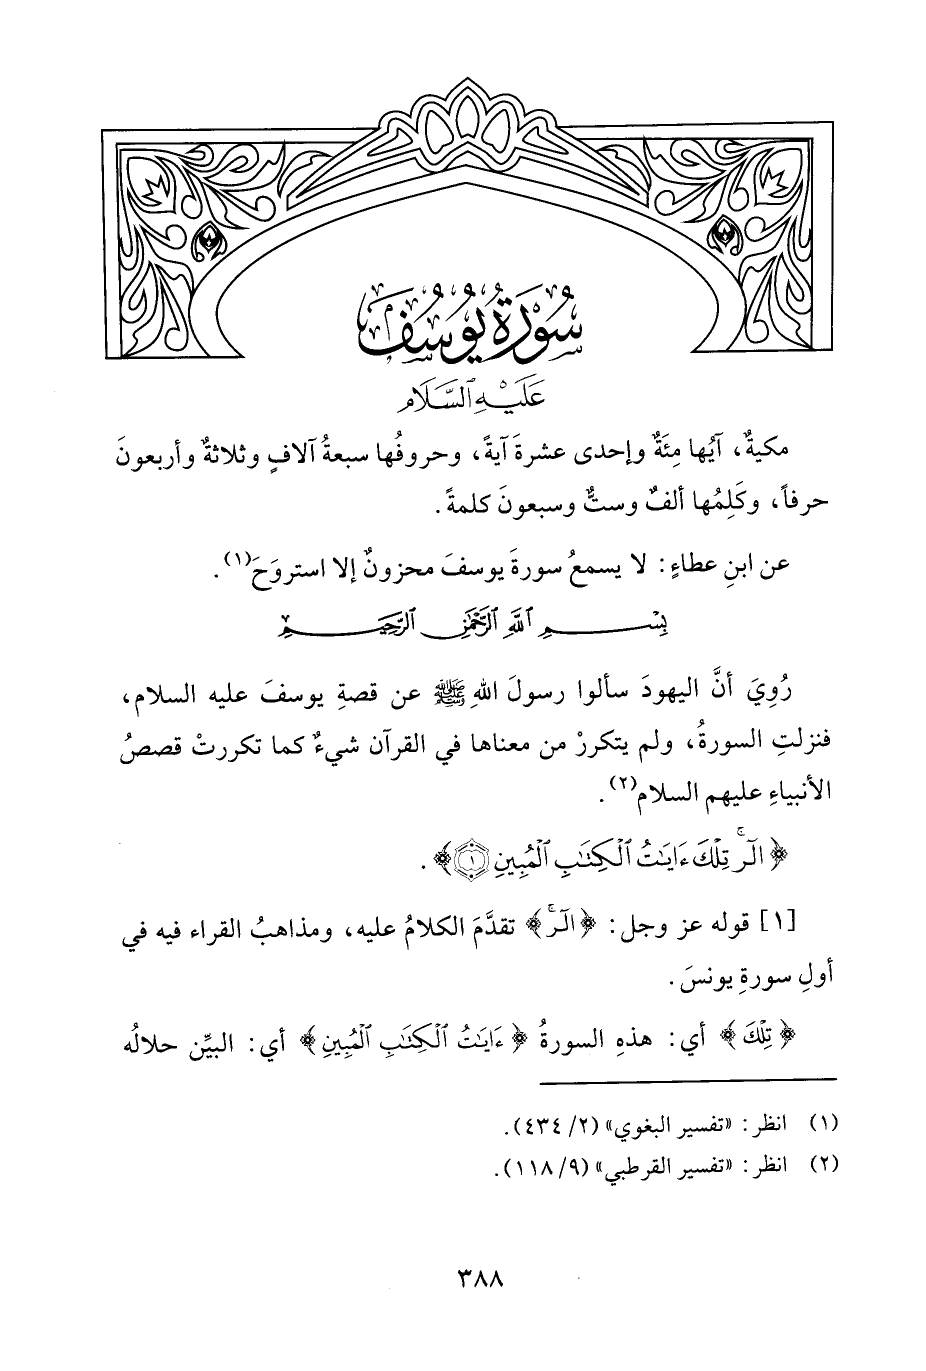 سُورَةُ يُوسُفَ
عَلَيْهِ السَّلَام
مكيةٌ، آيُها مِئَةٌ وإحدى عشرةَ آيةً، وحروفُها سبعةُ آلافٍ وثلاثةٌ وأربعونَ
حرفاً، وكَلِمُها ألفٌ وستٌّ وسبعونَ كلمةً.
عن ابنِ عطاءٍ: لا يسمعُ سورةَ يوسفَ محزونٌ إلا استروَحَ(١).
بِسْمِ ٱللَّهِ ٱلرَّحْمَٰنِ ٱلرَّحِيمِ
رُوِيَ أنَّ اليهودَ سألوا رسولَ اللهِ ﷺ عن قصةِ يوسفَ عليه السلام،
فنزلتِ السورةُ، ولم يتكررْ من معناها في القرآن شيءٌ كما تكررتْ قصصُ
الأنبياءِ عليهم السلام(٢).
﴿الٓرۚ تِلْكَ ءَايَٰتُ ٱلْكِتَٰبِ ٱلْمُبِينِ ١﴾.
[١] قوله عز وجل: ﴿الٓرۚ﴾ تقدَّمَ الكلامُ عليه، ومذاهبُ القراء فيه في
أولِ سورةِ يونسَ.
﴿تِلْكَ﴾ أي: هذهِ السورةُ ﴿ءَايَٰتُ ٱلْكِتَٰبِ ٱلْمُبِينِ﴾ أي: البيِّن حلالُه
(١) انظر: «تفسير البغوي» (٢/ ٤٣٤).
(٢) انظر: «تفسير القرطبي» (٩/ ١١٨).
٣٨٨